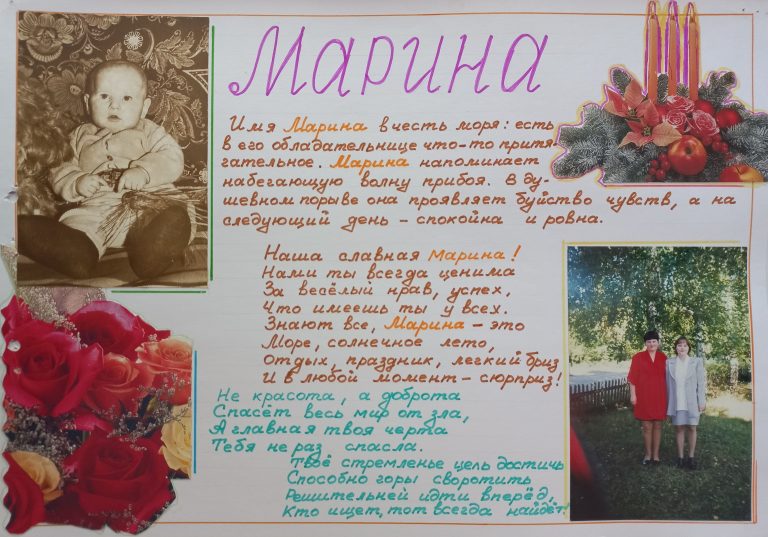 Марина
Имя Марина в честь моря: есть
в его обладательнице что-то притя-
гательное. Марина напоминает
набегающую волну прибоя. В ду-
шевном порыве она проявляет буйство чувств, а на
следующий день - спокойна и ровна.
Наша славная Марина!
Нами ты всегда ценима
За весёлый нрав, успех,
Что имеешь ты у всех.
Знают все, Марина - это
Море, солнечное лето,
Отдых, праздник, легкий бриз
И в любой момент - сюрприз!
Не красота, а доброта
Спасёт весь мир от зла,
А главная твоя черта
Тебя не раз спасла.
Твоё стремленье цель достичь
Способно горы своротить
Решительней идти вперёд,
Кто ищет, тот всегда найдёт!